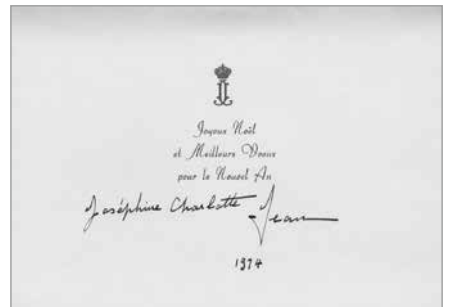 Joyeux Noël
et Meilleurs Voeux
pour le Nouvel An
Joséphine Charlotte Jean
1974